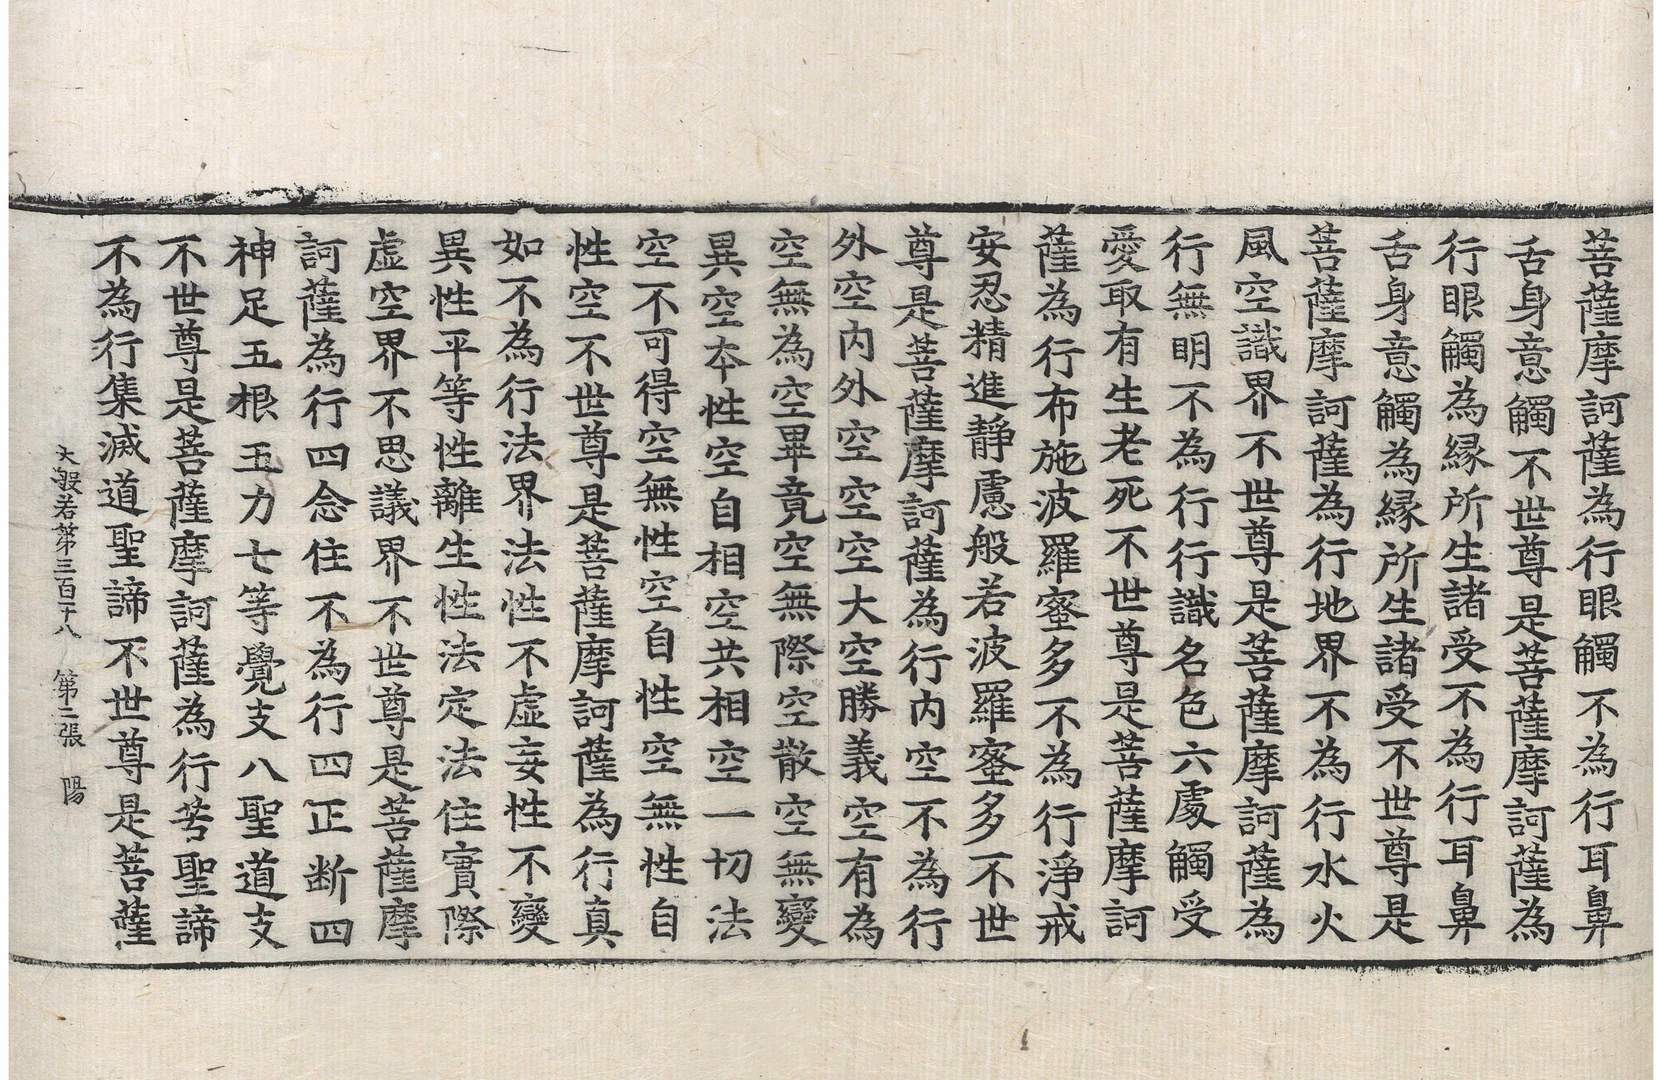 菩薩摩訶薩為行眼觸不為行耳鼻
舌身意觸不世尊是菩薩摩訶薩為
行眼觸為緣所生諸受不為行耳鼻
舌身意觸為緣所生諸受不世尊是
菩薩摩訶薩為行地界不為行水火
風空識界不世尊是菩薩摩訶薩為
行無明不為行行識名色六處觸受
愛取有生老死不世尊是菩薩摩訶
薩為行布施波羅蜜多不為行淨戒
安忍精進靜慮般若波羅蜜多不世
尊是菩薩摩訶薩為行內空不為行
外空內外空空空大空勝義空有為
空無為空畢竟空無際空散空無變
異空本性空自相空共相空一切法
空不可得空無性空自性空無性自
性空不世尊是菩薩摩訶薩為行真
如不為行法界法性不虛妄性不變
異性平等性離生性法定法住實際
虛空界不思議界不世尊是菩薩摩
訶薩為行四念住不為行四正斷四
神足五根五力七等覺支八聖道支
不世尊是菩薩摩訶薩為行苦聖諦
不為行集滅道聖諦不世尊是菩薩
大般若第三百十八　第二張　陽